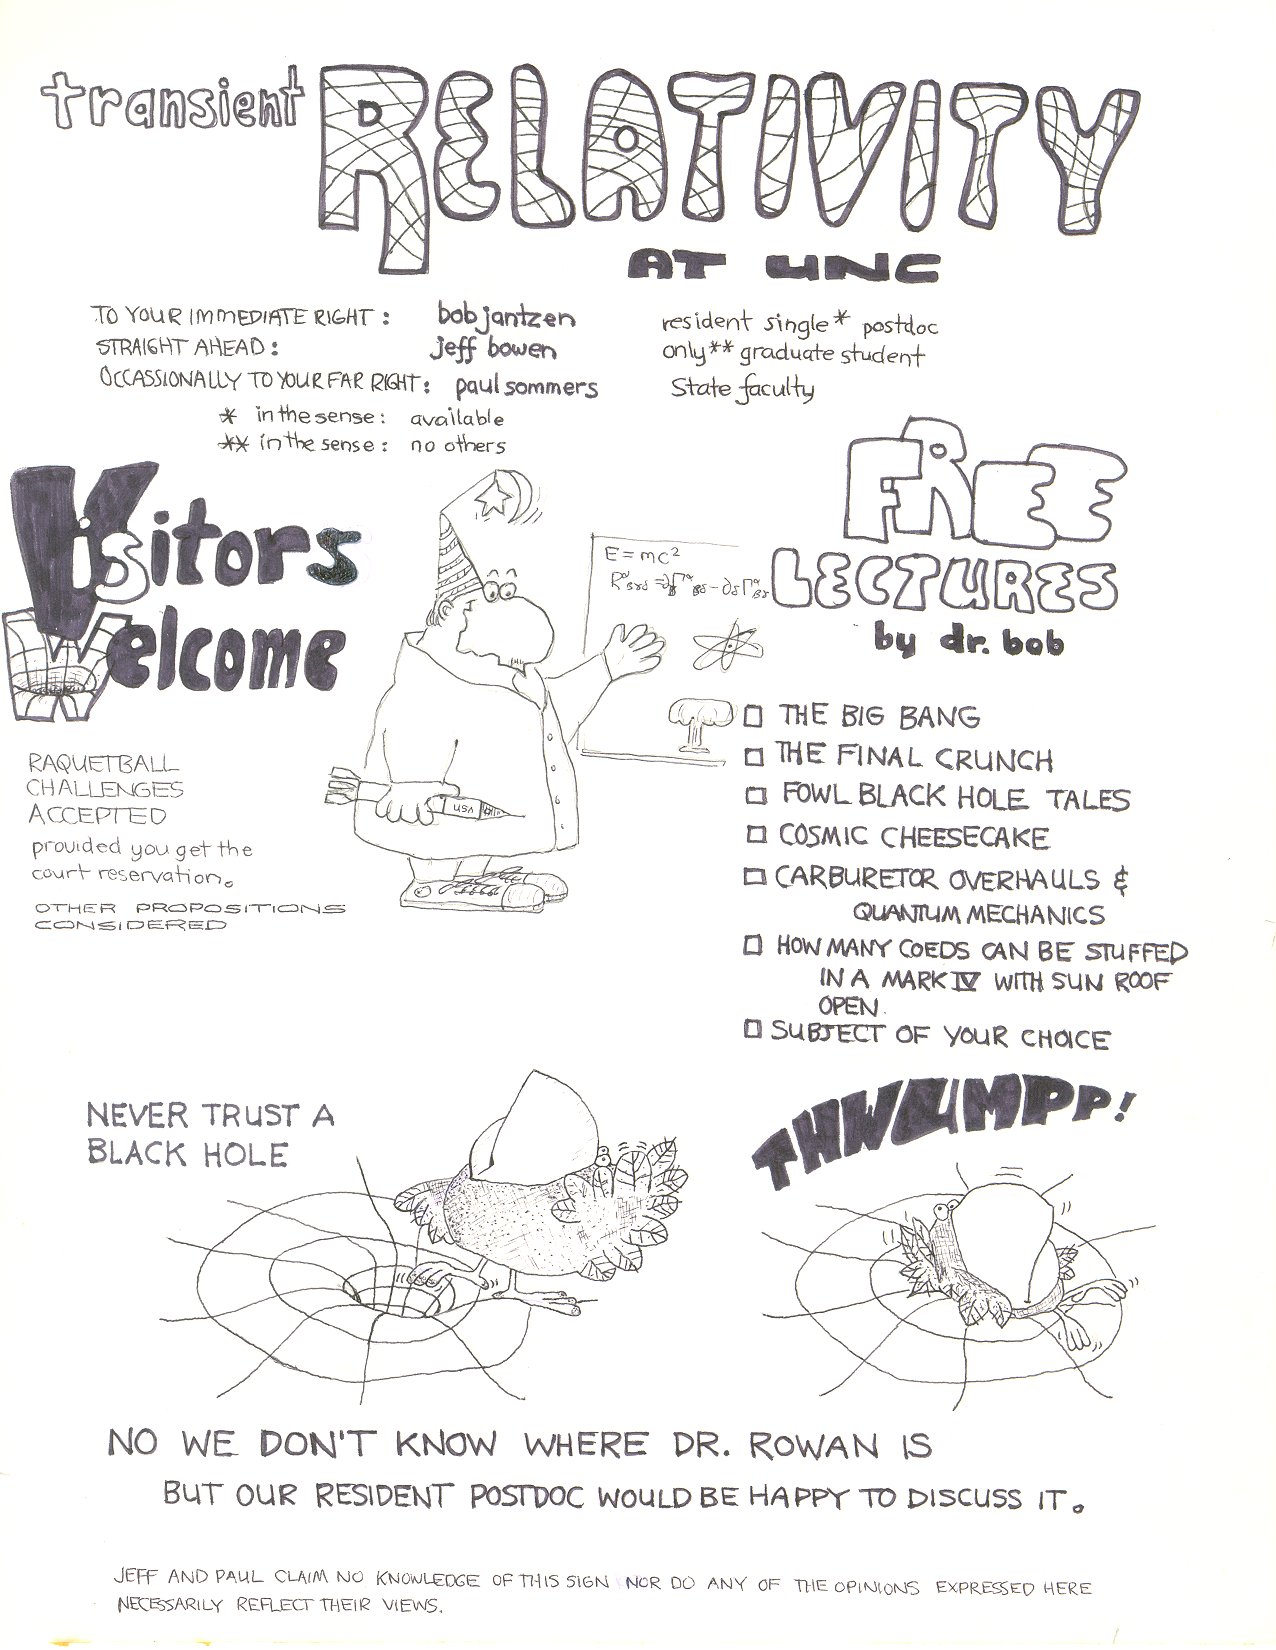 transient RELATIVITY
AT UNC
TO YOUR IMMEDIATE RIGHT: bob jantzen resident single* postdoc
STRAIGHT AHEAD: jeff bowen only** graduate student
OCCASSIONALLY TO YOUR FAR RIGHT: paul sommers State faculty
* in the sense: available
** in the sense: no others
Visitors
Welcome
RAQUETBALL
CHALLENGES
ACCEPTED
provided you get the
court reservation.
OTHER PROPOSITIONS
CONSIDERED
E = mc²
USA
FREE
LECTURES
by dr. bob
THE BIG BANG
THE FINAL CRUNCH
FOWL BLACK HOLE TALES
COSMIC CHEESECAKE
CARBURETOR OVERHAULS &
QUANTUM MECHANICS
HOW MANY COEDS CAN BE STUFFED
IN A MARK IV WITH SUN ROOF
OPEN.
SUBJECT OF YOUR CHOICE
NEVER TRUST A
BLACK HOLE
THWUMPP!
NO WE DON'T KNOW WHERE DR. ROWAN IS
BUT OUR RESIDENT POSTDOC WOULD BE HAPPY TO DISCUSS IT.
JEFF AND PAUL CLAIM NO KNOWLEDGE OF THIS SIGN NOR DO ANY OF THE OPINIONS EXPRESSED HERE
NECESSARILY REFLECT THEIR VIEWS.